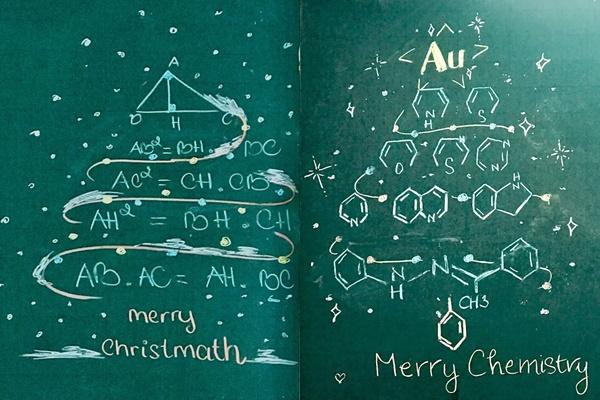 A
B H C
AB² = BH . BC
AC² = CH . CB
AH² = BH . CH
AB . AC = AH . BC
merry
christmath
Au
N
H
S
O
S
N
N
N
N
H
N
N
H
N
CH3
Merry Chemistry